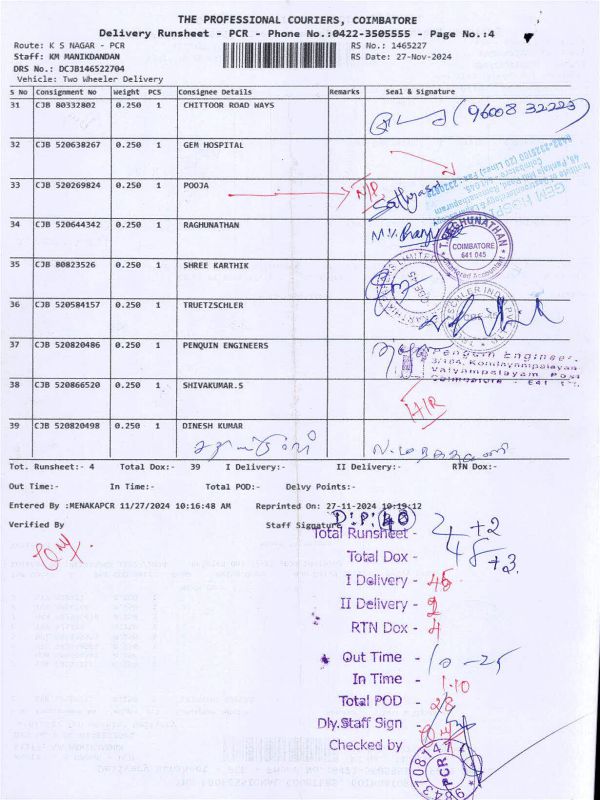 THE PROFESSIONAL COURIERS, COIMBATORE
Delivery Runsheet - PCR - Phone No.:0422-3505555 - Page No.:4
Route: K S NAGAR - PCR RS No.: 1465227
Staff: KM MANIKDANDAN RS Date: 27-Nov-2024
DRS No.: DCJB146522704
Vehicle: Two Wheeler Delivery
S No Consignment No Weight PCS Consignee Details Remarks Seal & Signature
31 CJB 80332802 0.250 1 CHITTOOR ROAD WAYS (96008 32223)
32 CJB 520638267 0.250 1 GEM HOSPITAL
33 CJB 520269824 0.250 1 POOJA N/R
34 CJB 520644342 0.250 1 RAGHUNATHAN
T. REGHUNATHAN
COIMBATORE
641 045
35 CJB 80823526 0.250 1 SHREE KARTHIK
36 CJB 520584157 0.250 1 TRUETZSCHLER
37 CJB 520820486 0.250 1 PENQUIN ENGINEERS
Penguin Engineer
38 CJB 520866520 0.250 1 SHIVAKUMAR.S
39 CJB 520820498 0.250 1 DINESH KUMAR
Tot. Runsheet:- 4 Total Dox:- 39 I Delivery:- II Delivery:- RTN Dox:-
Out Time:- In Time:- Total POD:- Delvy Points:-
Entered By :MENAKAPCR 11/27/2024 10:16:48 AM Reprinted On: 27-11-2024 10:19:12
Verified By Staff Signature
D:P: 40
Total Runsheet - 4 +2
Total Dox - 48 +3
I Delivery - 45
II Delivery - 2
RTN Dox - 4
Out Time - 10-25
In Time - 1.10
Total POD - 28
Dly.Staff Sign -
Checked by
PCR